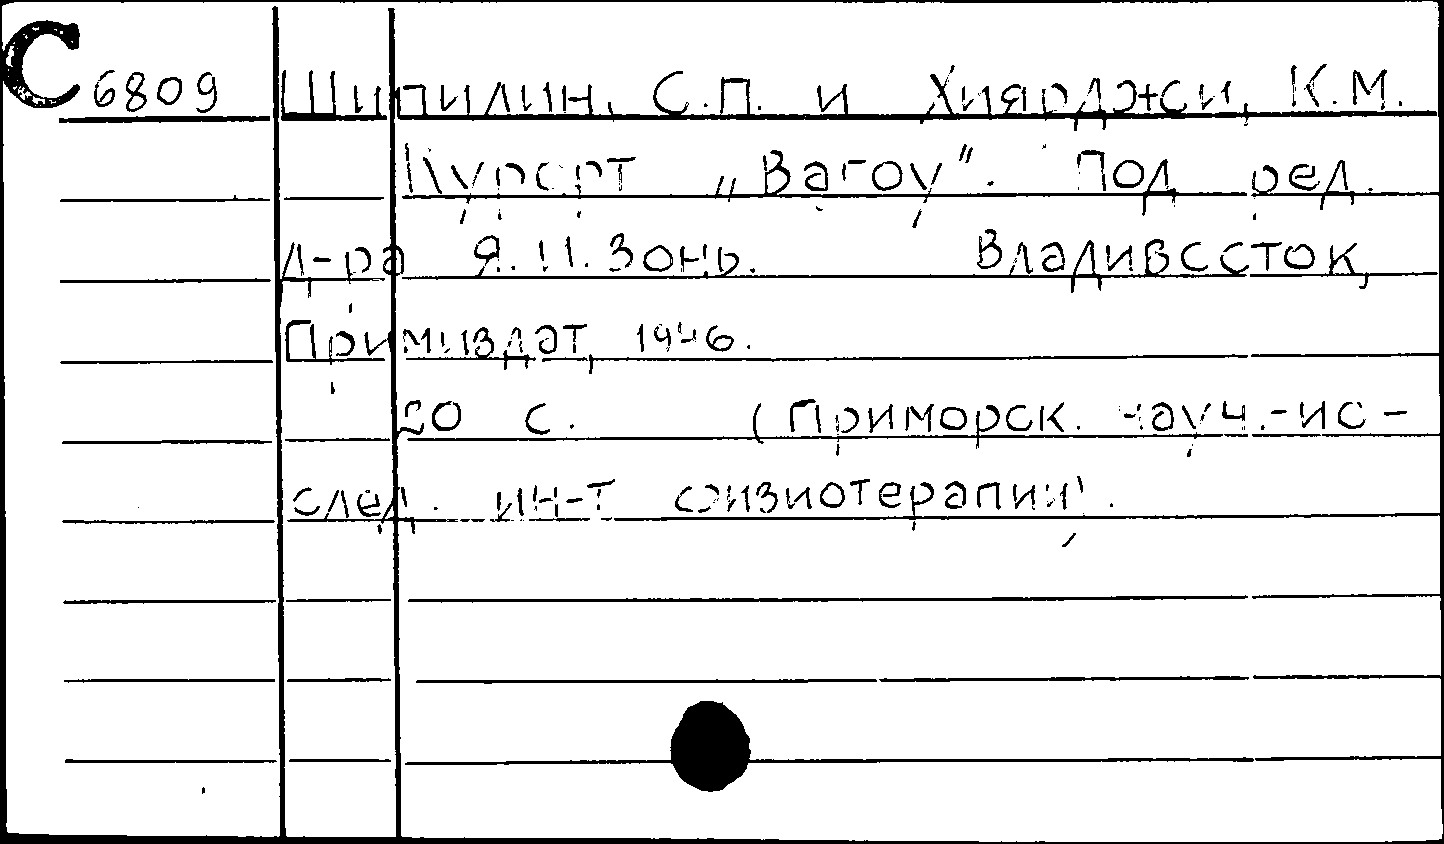 С 6809 Шипилин, С.П. и Хиярджи, К.М.
Курорт „Вагоу". Под ред.
д-ра Я.И. Зонь. Владивосток,
Примиздат, 1946.
20 с. (Приморск. науч.-ис-
след. ин-т физиотерапии).